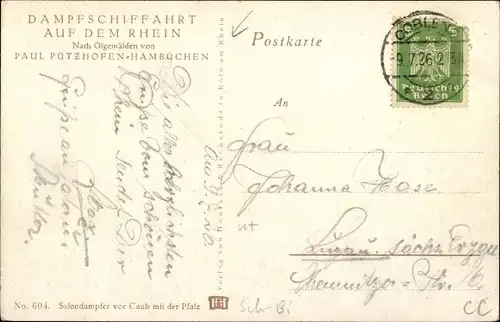 DAMPFSCHIFFAHRT
AUF DEM RHEIN
Nach Ölgemälden von
PAUL PÜTZHOFEN-HAMBÜCHEN
Postkarte
COBLENZ
9.7.26.2
Deutsches
Reich
5
An
Frau
Johanna Hase
Lugau, sächs. Erzgeb
Chemnitzer-Str. 6.
Die allerherzlichsten
Grüße vom schönen
Rhein sendet Dir
Max
Grüße an
Mutter.
Verlag von Hoursch & Bechstedt in Köln am Rhein
No. 604. Salondampfer vor Caub mit der Pfalz
Sch-Bi
CC